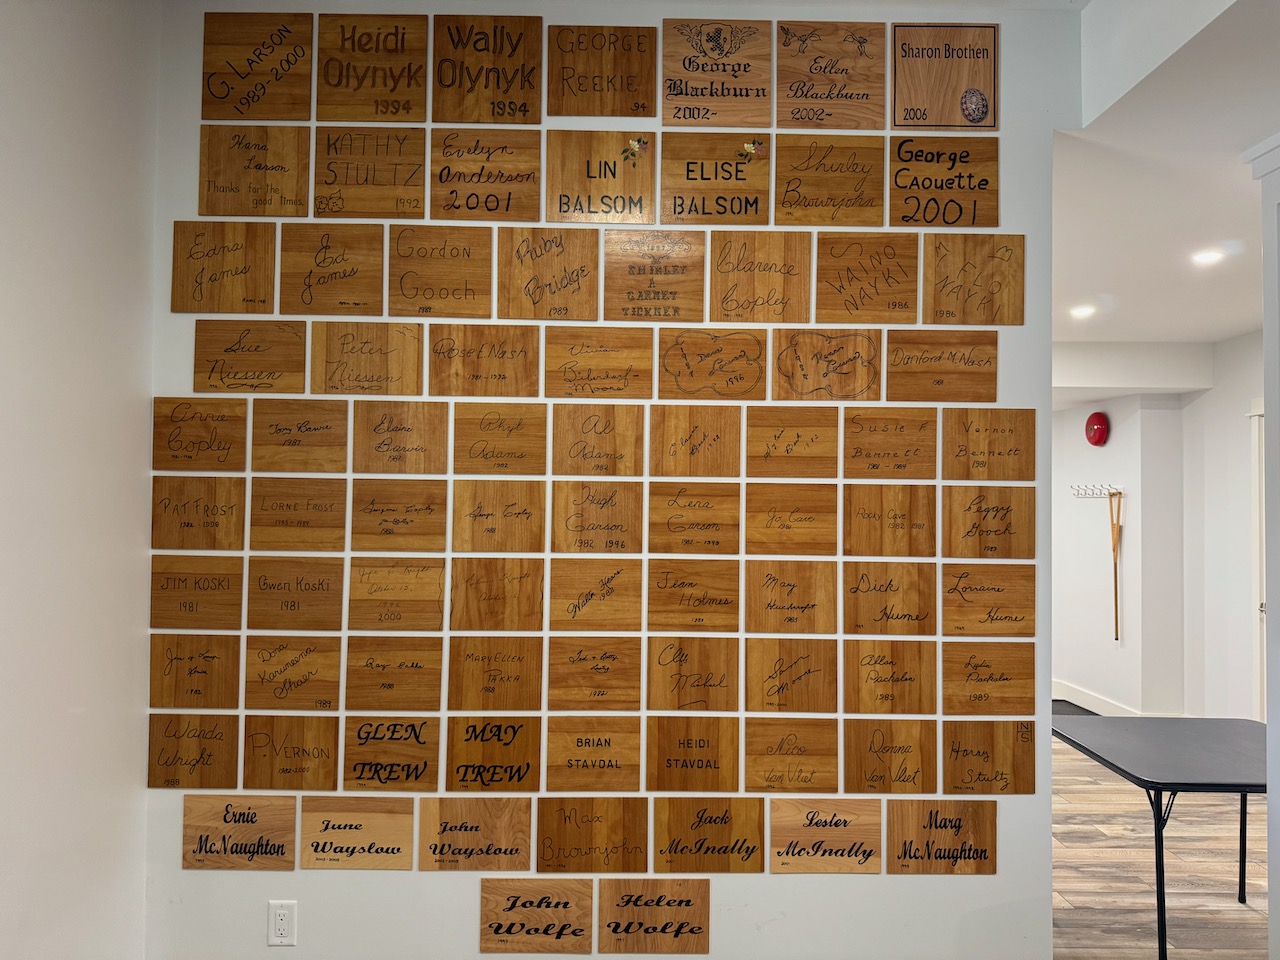 G. LARSON
1989-2000
Heidi
Olynyk
1994
Wally
Olynyk
1994
GEORGE
REEKIE
94
George
Blackburn
2002-
Ellen
Blackburn
2002-
Sharon Brothen
2006
Hana
Larson
Thanks for the
good times.
KATHY
STULTZ
1992
Evelyn
Anderson
2001
LIN
BALSOM
ELISE
BALSOM
Shirley
Brownjohn
George
CAouette
2001
Edna
James
Ed
James
Gordon
Gooch
1989
Ruby
Bridge
1989
SHIRLEY
&
GARNET
TICKNER
Clarence
Copley
WAINO
NAYKI
1986
NAYKI
1986
Sue
Niessen
Peter
Niessen
Rose E Nash
1981-1992
Vivian
Biberdorf-
Moore
1996
Danford M. Nash
1981
Annie
Copley
Tony Barvir
1987
Elaine
Barvir
1987
Phyl
Adams
1982
Al
Adams
1982
Susie F.
Bennett
1981-1984
Vernon
Bennett
1981
PAT FROST
LORNE FROST
Copley
1988
George Copley
1988
Hugh
Carson
1982 1996
Lena
Carson
Jo Cave
1981
Rocky Cave
1982 1987
Peggy
Gooch
1989
JIM KOSKI
1981
Gwen Koski
1981
October 15,
2000
Knight
1985
Jean
Holmes
Mary
1985
Dick
Hume
Lorraine
Hume
1982
Dora
Karuneena
Shaer
1989
Ray
1988
MARY ELLEN
PAKKA
1988
1982
Cliff
Michiel
Moore
Allan
Pachalin
1989
Lydia
Pachalin
1989
Wanda
Wright
1988
P. VERNON
1982-2000
GLEN
TREW
MAY
TREW
BRIAN
STAVDAL
HEIDI
STAVDAL
Nico
Van Vliet
Donna
Van Vliet
NS
Harry
Stultz
Ernie
McNaughton
June
Wayslow
John
Wayslow
Max
Brownjohn
Jack
McInally
Lester
McInally
Marg
McNaughton
John
Wolfe
Helen
Wolfe